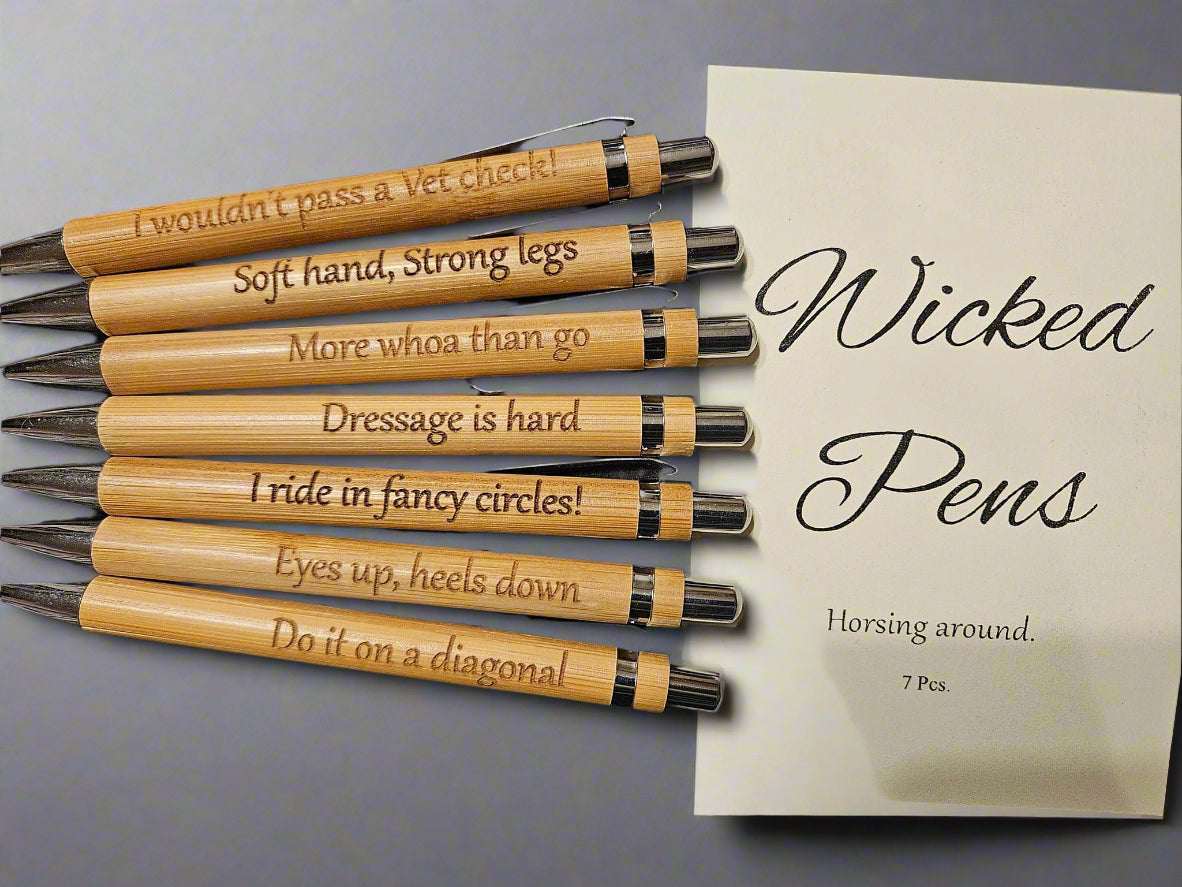 I wouldn't pass a Vet check!
Soft hand, Strong legs
More whoa than go
Dressage is hard
I ride in fancy circles!
Eyes up, heels down
Do it on a diagonal
Wicked
Pens
Horsing around.
7 Pcs.